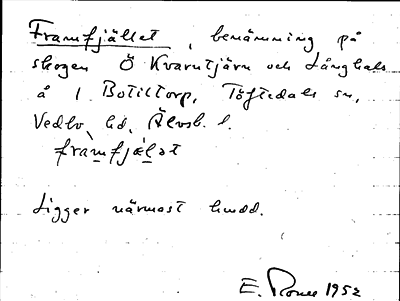 Framfjället, benämning på
skogen Ö Kvarntjärn och Långhals
å 1 Botiltorp, Töftedals sn,
Vedbo hd, Älvsb. l.
framfjælət
Ligger närmast huvud.
E. 1952